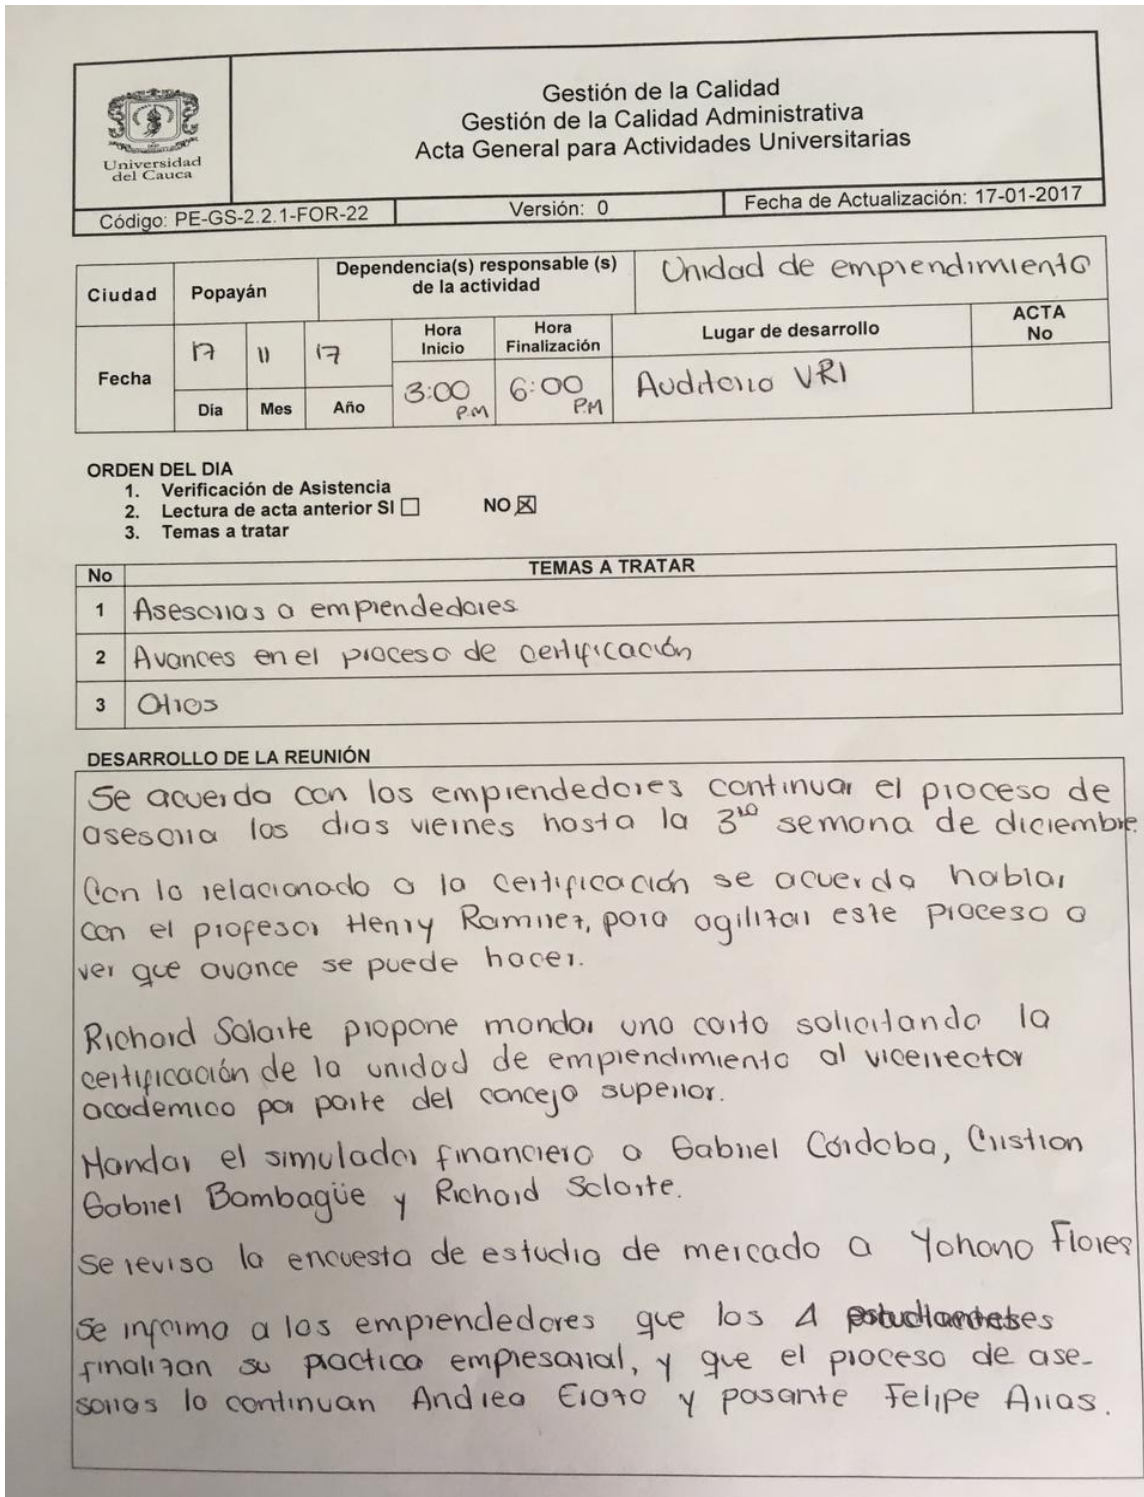 Universidad
del Cauca
Gestión de la Calidad
Gestión de la Calidad Administrativa
Acta General para Actividades Universitarias
Código: PE-GS-2.2.1-FOR-22 Versión: 0 Fecha de Actualización: 17-01-2017
Ciudad Popayán Dependencia(s) responsable (s) de la actividad Unidad de emprendimiento
Fecha 17 11 17 Hora Inicio Hora Finalización Lugar de desarrollo ACTA No
Día Mes Año 3:00 P.M 6:00 PM Auditorio VRI
ORDEN DEL DIA
1. Verificación de Asistencia
2. Lectura de acta anterior SI ☐ NO ☒
3. Temas a tratar
No TEMAS A TRATAR
1 Asesorias a emprendedores
2 Avances en el proceso de certificación
3 Otros
DESARROLLO DE LA REUNIÓN
Se acuerda con los emprendedores continuar el proceso de
asesoria los dias viernes hasta la 3ra semana de diciembre.
Con lo relacionado a la certificación se acuerda hablar
con el profesor Henry Ramirez, para agilizar este proceso a
ver que avance se puede hacer.
Richard Solarte propone mandar una carta solicitando la
certificación de la unidad de emprendimiento al vicerrector
academico por parte del concejo superior.
Mandar el simulador financiero a Gabriel Córdoba, Cristian
Gabriel Bambagüe y Richard Solarte.
Se reviso la encuesta de estudio de mercado a Yohana Flores
Se informa a los emprendedores que los 4 estudiantes
finalizan su practica empresarial, y que el proceso de ase-
sorias lo continuan Andrea Erazo y pasante Felipe Arias.